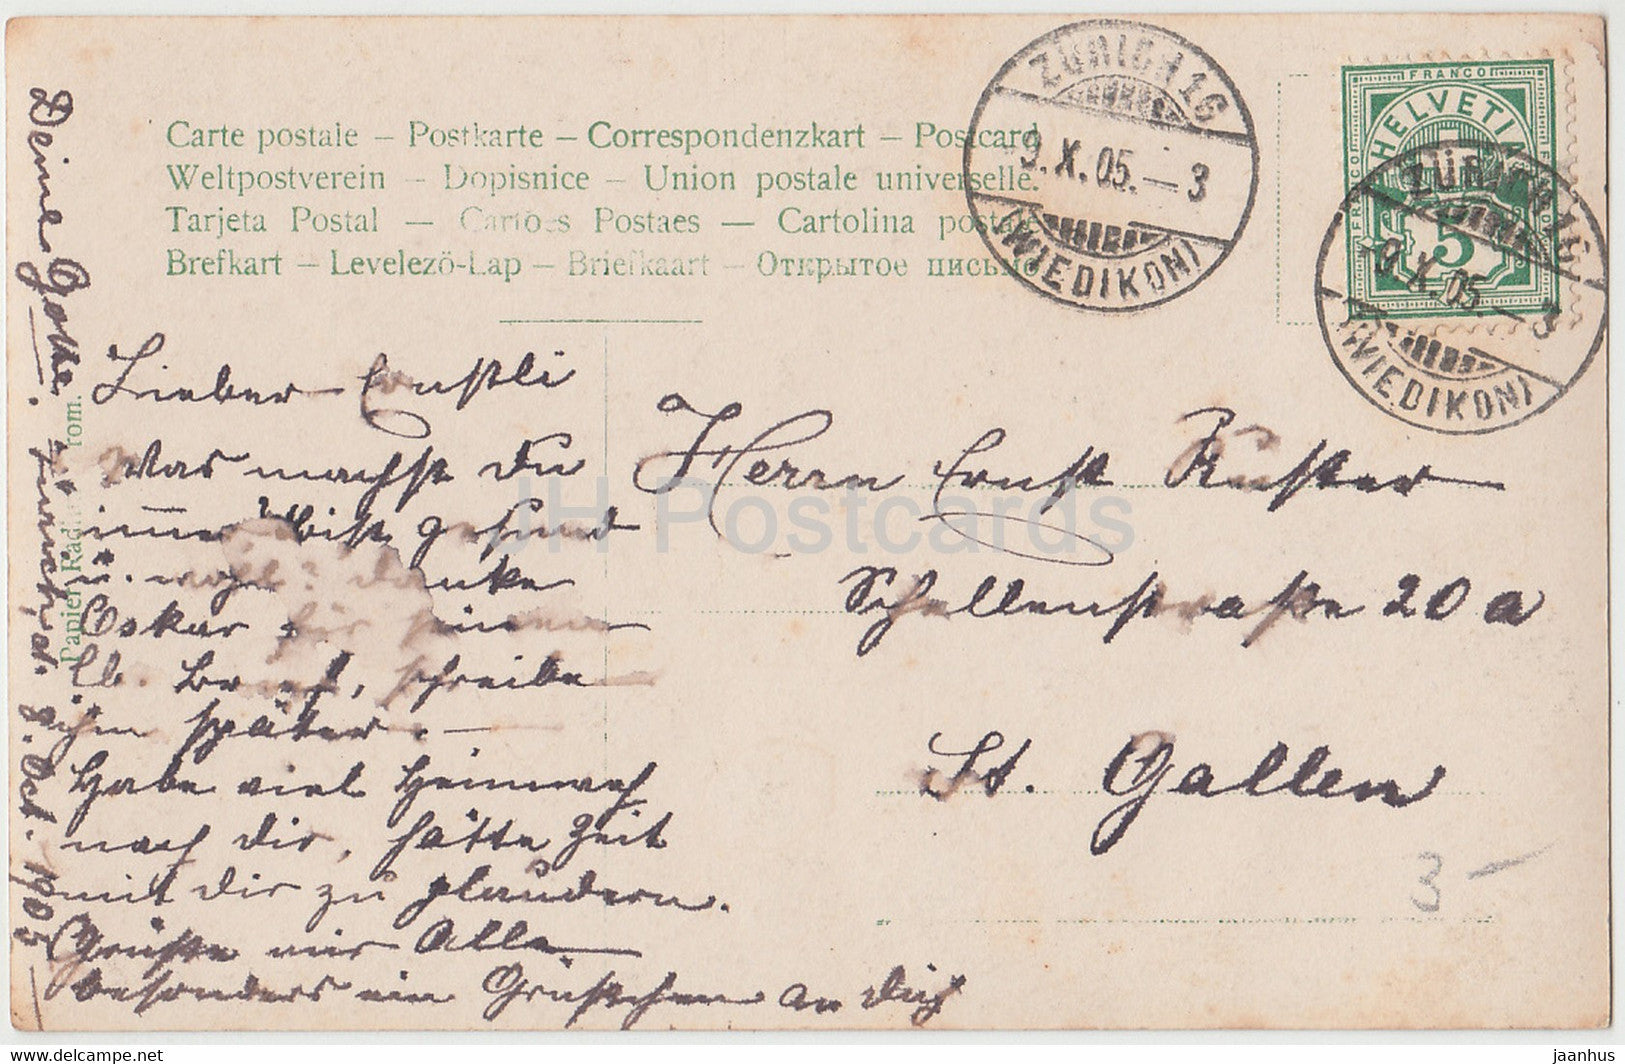 Carte postale – Postkarte – Correspondenzkart – Postcard
Weltpostverein – Dopisnice – Union postale universelle.
Tarjeta Postal – Cartões Postaes – Cartolina postale
Brefkart – Levelező-Lap – Briefkaart – Открытое письмо
ZÜRICH 16
9. X. 05. – 3
(WIEDIKON)
FRANCO
HELVETIA
5
ZÜRICH 16
9. X. 05. – 3
(WIEDIKON)
Lieber Ernstli
Was machst du
immer? Bist gesund
u. wohl? danke
Oskar für seinen
lb. Brief, schreibe
ihm später. –
Habe viel Heimweh
nach dir, hätte Zeit
mit dir zu plaudern.
Grüsse mir Alle
besonders ein Grüsschen an dich
Deine Gotte.
Zürich, d. 8. Oct. 1905
Herrn Ernst Kuster
Schellenstrasse 20 a
St. Gallen
3 –
Papier Rad rom.
JH Postcards
www.delcampe.net
jaanhus